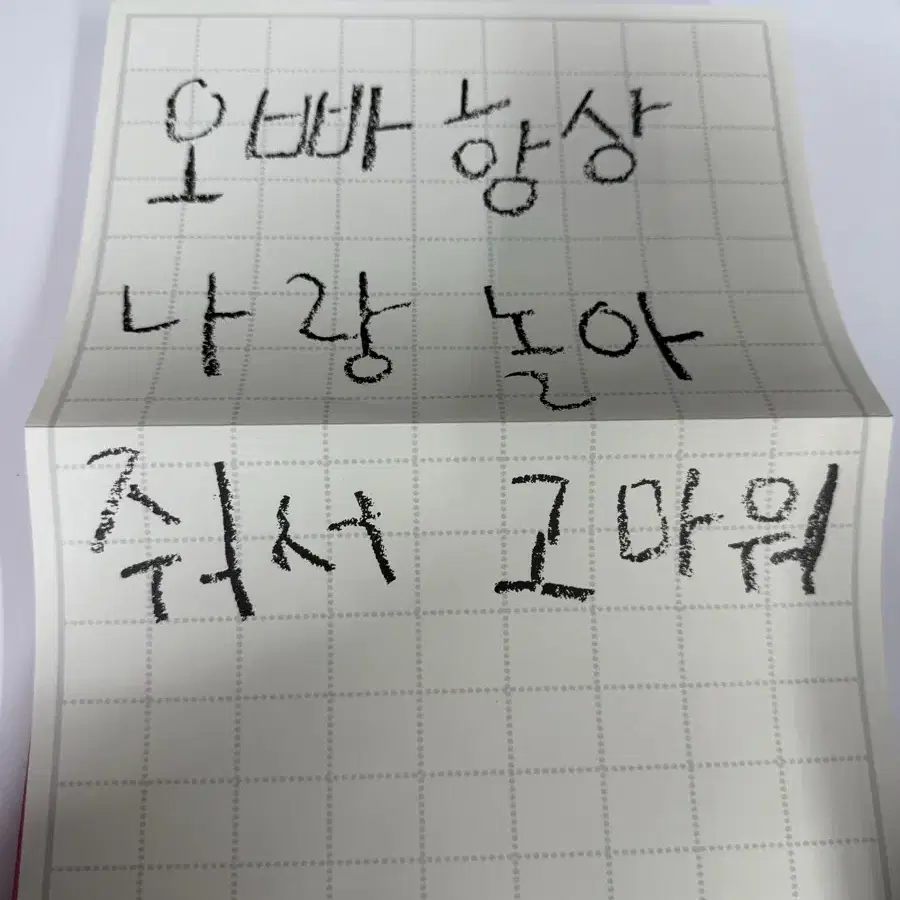 오빠 항상
나랑 놀아
줘서 고마워